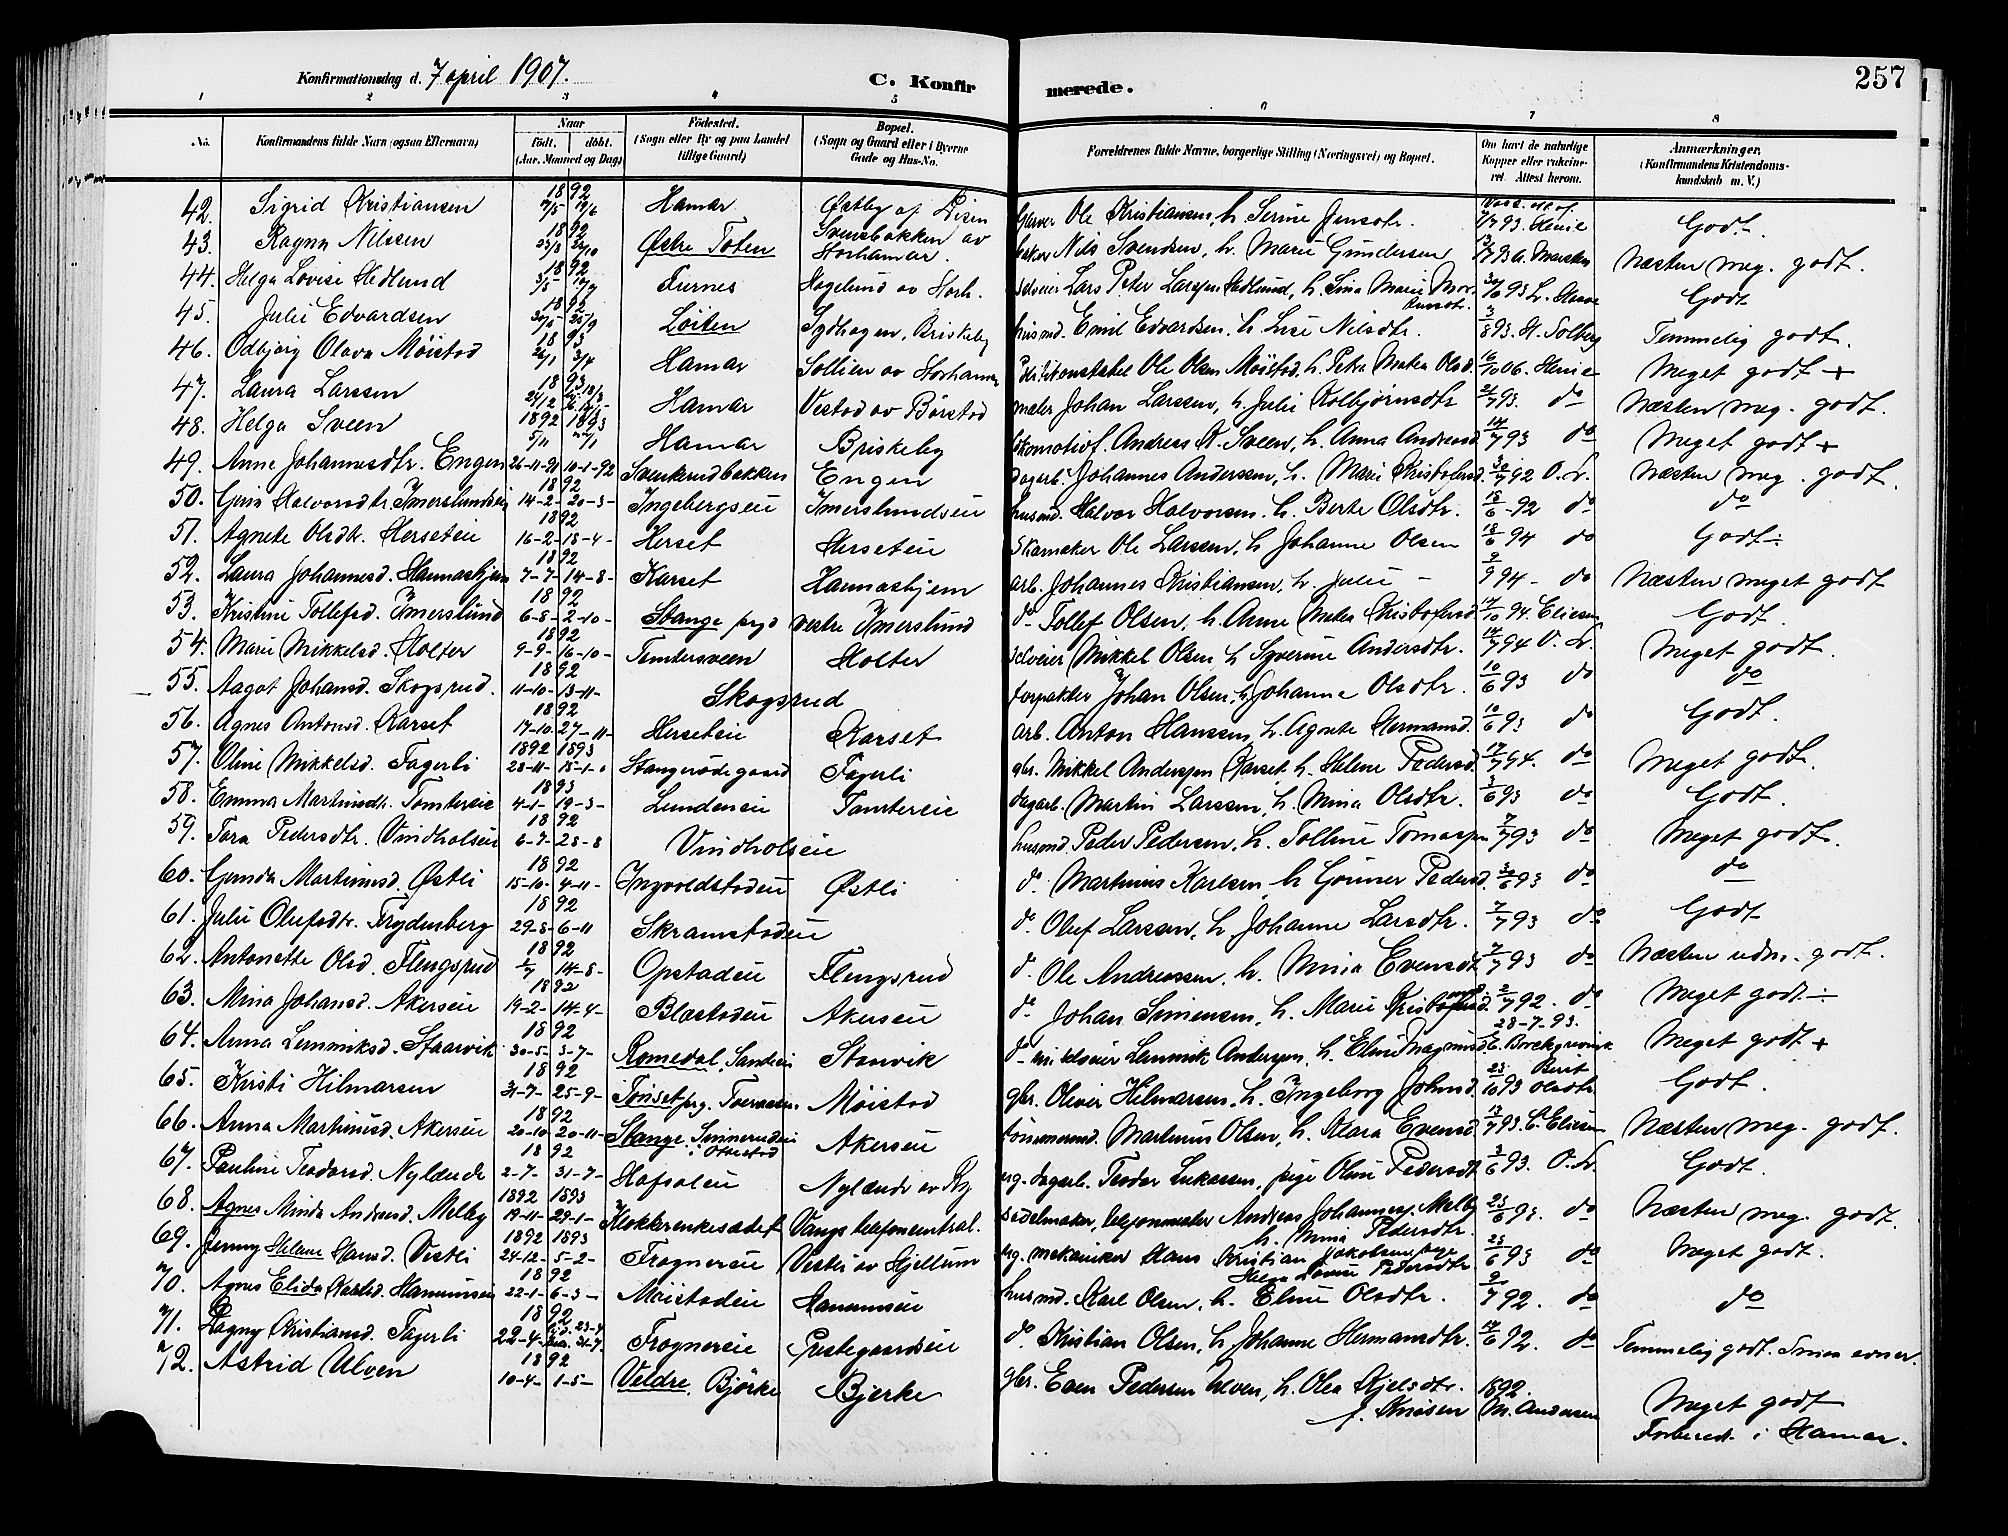 257
Konfirmationsdag d. 7 april 1907.
C. Konfirmerede.
1 2 3 4 5 6 7 8
No. Konfirmandens fulde Navn (ogsaa Efternavn) Naar født. døbt. (Aar, Maaned og Dag) Fødested. (Sogn eller By og paa Landet tillige Gaard) Bopæl. (Sogn og Gaard eller i Byerne Gade og Hus-No. Forældrenes fulde Navne, borgerlige Stilling (Næringsvei) og Bopæl. Om havt de naturlige Kopper eller vakcineret. Attest herom. Anmærkninger. (Konfirmandens Kristendomskundskab m. V.)
42. Sigrid Kristiansen 1892 Hamar Østby af Disen Ole Kristiansen, h. Serine Jensdtr. 93. Henie Godt.
43. Ragna Nilssen 1892 Østre Toten Svensbakken av Storhamar. Nils Svendsen, h. Marie Gundersen 93 Næsten meg. godt.
44. Helga Lovise Hedlund 1892 Furnes Hagelund av Storh. selveier Lars Peter Larssen Hedlund, h. Lina Marie 93 Godt
45. Julie Edvardsen 1892 Løiten Sydhagen, Briskeby husmd. Emil Edvardsen, h. Lise Nilsdtr. 3/8 93. H. Solberg Temmelig godt.
46. Odbjørg Olava Møistad 1893 26/1 3/4 Hamar Sollien av Storhamar Politikonstabel Ole Olsen Møistad, h. Petra Mathea Olsd. 16/10 06. Henie Meget godt +
47. Laura Larssen 1893 Hamar Vestad av Børstad maler Johan Larssen, h. Julie Kolbjørnsdtr 93. do Næsten meg. godt.
48. Helga Sveen 1892 1893 5/11 Hamar Briskeby Andreas H. Sveen, h. Anna Andreasd. 14/7 93 do Meget godt +
49. Anne Johannesdtr. Engen 26-11-91 10-1-92 Svenkerudbakken Engen dagarb. Johannes Andersen, h. Marie Kristofersd. 92 O. Lr. Næsten meg. godt.
50. Gina Halvorsdtr. Imerslundseie 1892 14-2- 20-3- Ingebergseie Imerslundseie husmd. Halvor Halvorsen, h. Berte Olsdtr. 18/6 -92 do do
51. Agnete Olsdtr. Herseteie 1892 16-2- 18-4- Herset Herseteie skomaker Ole Larssen, h. Johanne Olsen 18/6 94 do Godt ÷
52. Laura Johannesd. Hannashjem 1892 7-7- 14-8- Karset Hannashjem arb. Johannes Kristiansen, h. Julie - 9/9 94- do Næsten meget godt
53. Kristine Tollefsd. Imerslund 1892 6-8- 2-10- Stange prgd vestre Imerslund do Tollef Olsen, h. Anne Mathea Kristofersd. 94. Eliesen Godt.
54. Marie Mikkelsd. Holter 1892 9-9- 16-10- Tomtersveen Holter selveier Mikkel Olsen, h. Syverine Andersdtr. 94 O. Lr. Meget godt.
55. Aagot Johansd. Skogsrud. 1892 11-10- 13-11- Skogsrud forpakter Johan Olsen, h. Johanne Olsdtr. 10/6 93 do do
56. Agnes Antonsd. Karset 1892 17-10- 27-11- Herseteie Karset arb. Anton Hanssen, h. Agnete Hermansd. 10/6 93 do Godt.
57. Oline Mikkelsd. Fagerli 1892 1893 28-11- 15-1- Stangerødegaard Fagerli gbr. Mikkel Anderssen Karset, h. Helene Pedersd. 94. do Meget godt.
58. Emma Martinsdtr. Tomtereie 1893 4-1- 19-3- Lundeneie Tomtereie dagarb. Martin Larssen, h. Mina Olsdtr. 3/6 93 do Godt.
59. Tora Pedersdtr. Vindholseie 1892 6-7- 28-8 Vindholseie husmd Peder Pedersen, h. Tolline Tomassen 7/7 93 do Meget godt.
60. Gunda Martinusd. Østli 1892 15-10- 4-11- Ingvoldstadeie Østli do. Martinus Karlsen, h. Gouner Pedersd. 3/6 93 do do
61. Julie Olufsdtr. Frydenberg 1892 29-8- 6-11 Skramstadeie do. Oluf Larssen, h. Johanne Larsdtr. 7/7 93 do Godt
62. Antonette Olsd. Flengsrud 1892 14-8- Opstadeie Flengsrud do. Ole Andreassen, h. Mina Evensdtr 7/7 93 do Næsten udm. godt.
63. Mina Johansd. Akerseie 1892 19-2- 14-4- Blæstadeie Akerseie do Johan Simensen, h. Marie Kristofersd. 2/7 92. do Meget godt ÷
64. Anna Lemmiksd. Staarvik 1892 30-5- 3-7- Romedal, Sanderu Starvik Lemmik Anderssen, h. Eline Magnusd. 28-7-93. E. Borchgrevink Meget godt +
65. Kirsti Hilmarsen 1892 31-7- 25-9- Tønset prg. Møistad gbr. Oliver Hilmarsen, h. Ingeborg Johnsd. 93 Berit Olsdtr. Godt.
66. Anna Martinusd. Akerseie 1892 20-10- 20-11- Stange, i Ottestad Akerseie tømmermd. Martinus Olsen, h. Klara Evensd 13/7 93. C. Eliesen Næsten meg. godt.
67. Pauline Teodorsd. Nylænde 1892 2-7- 31-7- Hafsaleie Nylænde av By ug. dagarb. Teodor Lukassen, pige Oline Pedersdt 3/6 93. O. Lr. Godt.
68. Agnes Minda Andreasd. Melby 1892 1893 19-11- 29-1- Klokkerenkesædet Vangs telefoncentral. sadelmaker, Andreas Johannesen Melby h. Mina Pedersdtr. 93. do Næsten meg. godt.
69. Jenny Helene Hansd. Vestli 1892 1893 24-12- 5-2- Frognereie Vestli av Hjellum ug. mekaniker Hans Kristian Jakobsen, pige Helga Lovise Pedersdtr 93 do Meget godt.
70. Agnes Elida Karlsd. Hanumseie 1892 22-1- 6-3- Møistadeie Hanumseie husmd. Karl Olsen, h. Eline Olsdtr. 92. do do
71. Ragna Kristiansd. Fagerli 1892 22-4- Frognereie Prestegaardseie do Kristian Olsen, h. Johanne Hermansdtr. 92. do Temmelig godt. Smaa evner.
72. Astrid Ulven 1892 10-4- 1-5- Veldre, Bjørke Bjerke gbr. Even Pedersen Ulven, h. Olea Kjelsdtr. f. Knisen 1892. M. Andersen Meget godt Forbered. i Hamar.